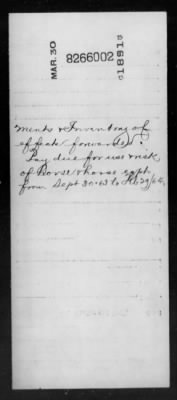 MAR. 30
8266002
1891
ments & Inventory of
effects forwarded.
Pay due for use & risk
of horse & horse eqpt.
from Sept 30-63 to Feb 29/64.